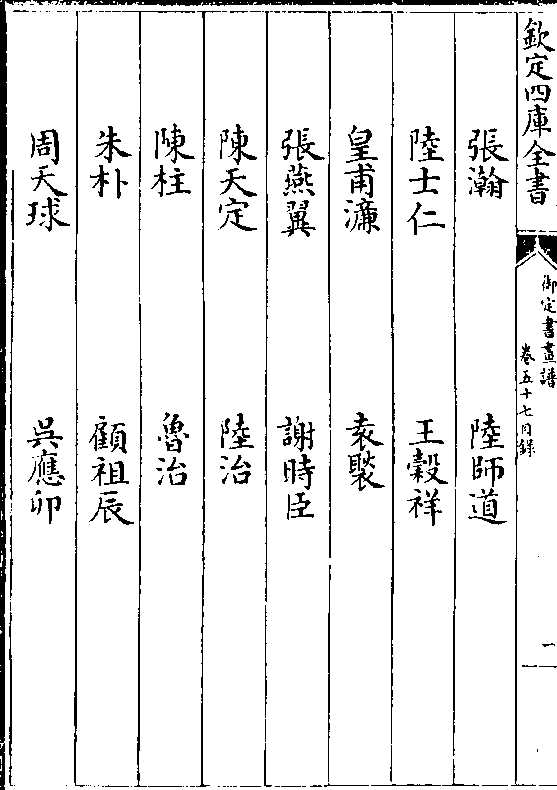 欽定四庫全書
御定書畫譜
卷五十七目録
一
張瀚 陸師道
陸士仁 王榖祥
皇甫濂 袁褧
張燕翼 謝時臣
陳天定 陸治
陳柱 魯治
朱朴 顧祖辰
周天球 吳應卯